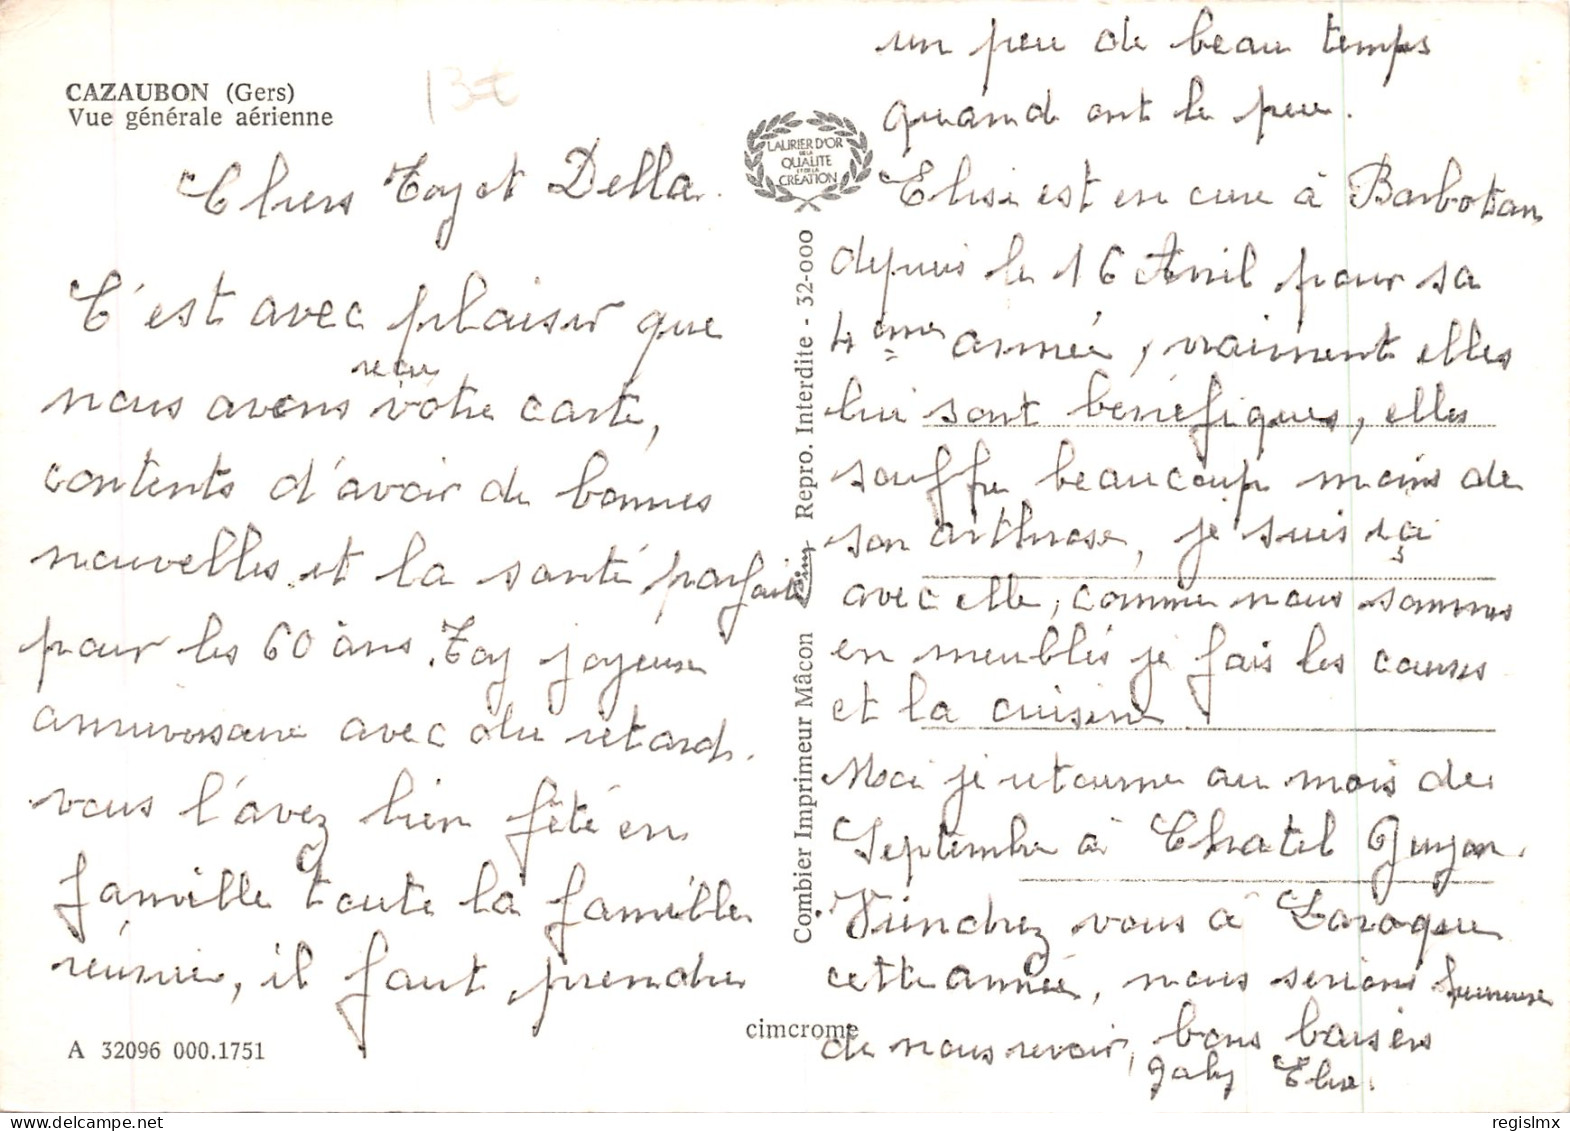 CAZAUBON (Gers)
Vue générale aérienne
Chers Toy et Della.
C'est avec plaisir que
reçu
nous avons votre carte,
contents d'avoir de bonnes
nouvelles et la santé parfaite
pour les 60 ans. Toy joyeux
anniversaire avec du retard.
vous l'avez bien fêté en
famille toute la famille
réunie, il faut prendre
A 32096 000.1751
LAURIER D'OR
DE LA
QUALITE
ET DE LA
CREATION
Combier Imprimeur Mâcon Cim Repro. Interdite - 32-000
cimcrome
un peu de beau temps
quand ont le peu.
Elise est en cure à Barbotan
depuis le 16 Avril pour sa
4ème année, vraiment elles
lui sont bénéfiques, elles
souffre beaucoup moins de
son arthrose, je suis içi
avec elle, comme nous sommes
en meublés je fais les courses
et la cuisine
Moi je retourne au mois de
Septembre à Chatel Guyon.
Viendrez vous à Laroque
cette année, nous serions heureuse
de nous revoir, bons baisers
Gaby Elise.
regislmx